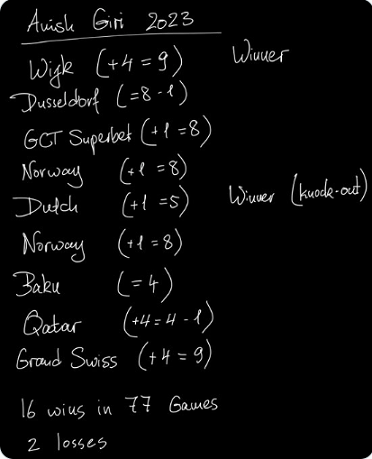 Anish Giri 2023
Wijk (+4 = 9) Winner
Dusseldorf (=8 -1)
GCT Superbet (+1 = 8)
Norway (+1 = 8)
Dutch (+1 = 5) Winner (knock-out)
Norway (+1 = 8)
Baku (= 4)
Qatar (+4 = 4 - 1)
Grand Swiss (+4 = 9)
16 wins in 77 Games
2 losses